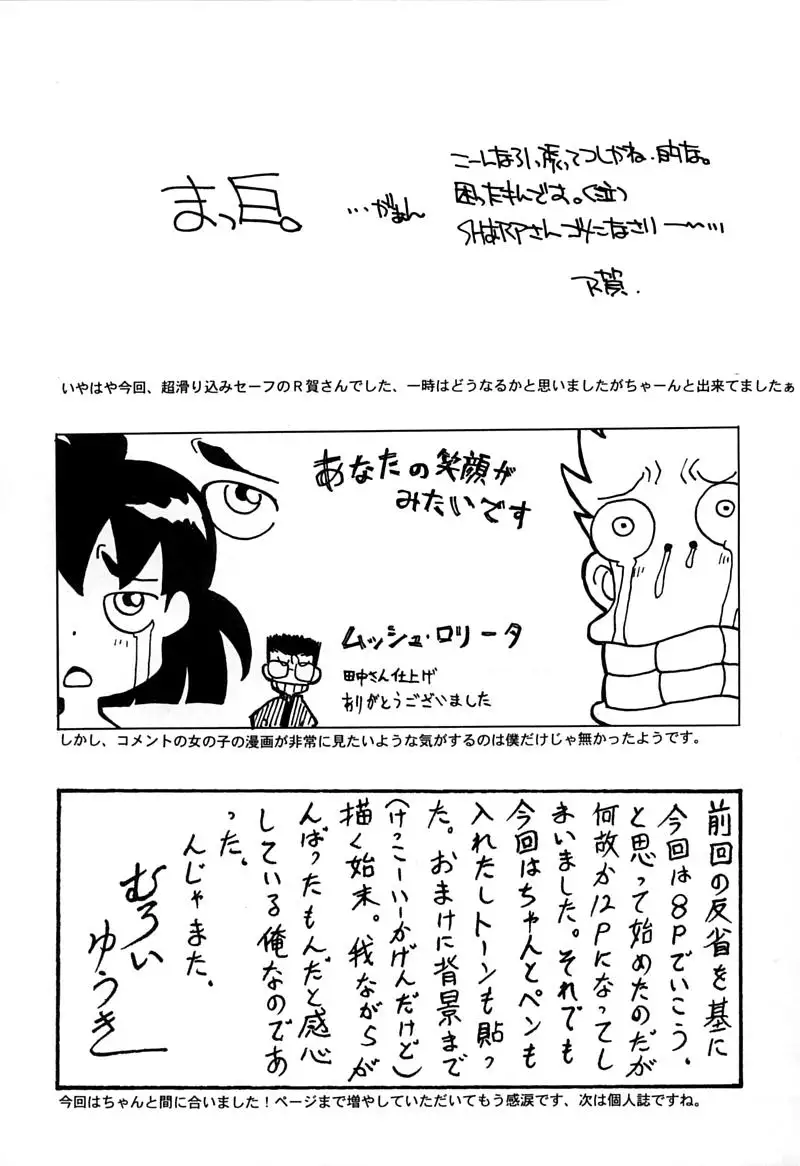 まっ白。
…がぁん
こーんなろい張ってつしかね、的な。
困ったもんです。(泣)
SHARPさんゴメンなさりー〜…
R賀.
いやはや今回、超滑り込みセーフのR賀さんでした、一時はどうなるかと思いましたがちゃーんと出来てましたぁ
あなたの笑顔が
みたいです
ムッシュ・ロリータ
田中さん仕上げ
ありがとうございました
しかし、コメントの女の子の漫画が非常に見たいような気がするのは僕だけじゃ無かったようです。
前回の反省を基に
今回は8Pでいこう.
と思って始めたのだが
何故か12Pになってし
まいました。それでも
今回はちゃんとペンも
入れたしトーンも貼っ
た。おまけに背景まで
(けっこーいーかげんだけど)
描く始末。我ながらが
んばったもんだと感心
している俺なのであ
った。
んじゃまた.
むろい
ゆうき
今回はちゃんと間に合いました！ページまで増やしていただいてもう感涙です、次は個人誌ですね。